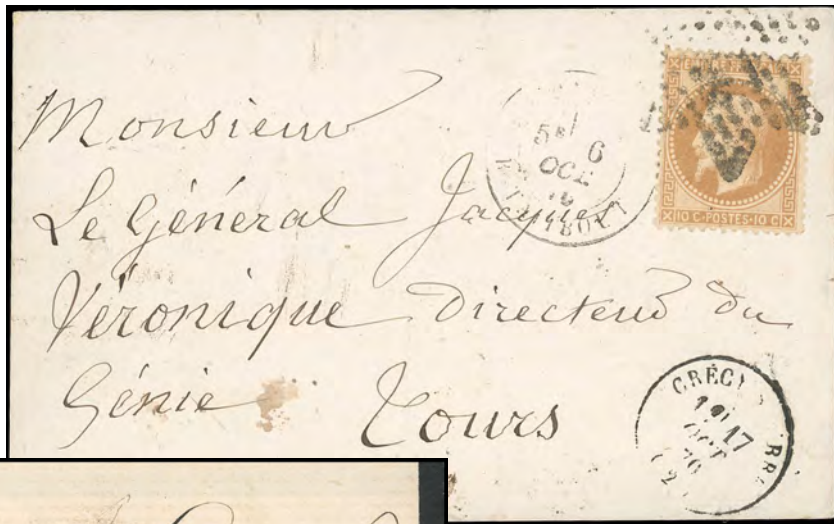 Monsieur
Le Général Jacques
Véronique Directeur du
Génie
Tours
EMPIRE
10 C·POSTES·10 C
5E 6
OCT
CRÉCY
17
OCT
70